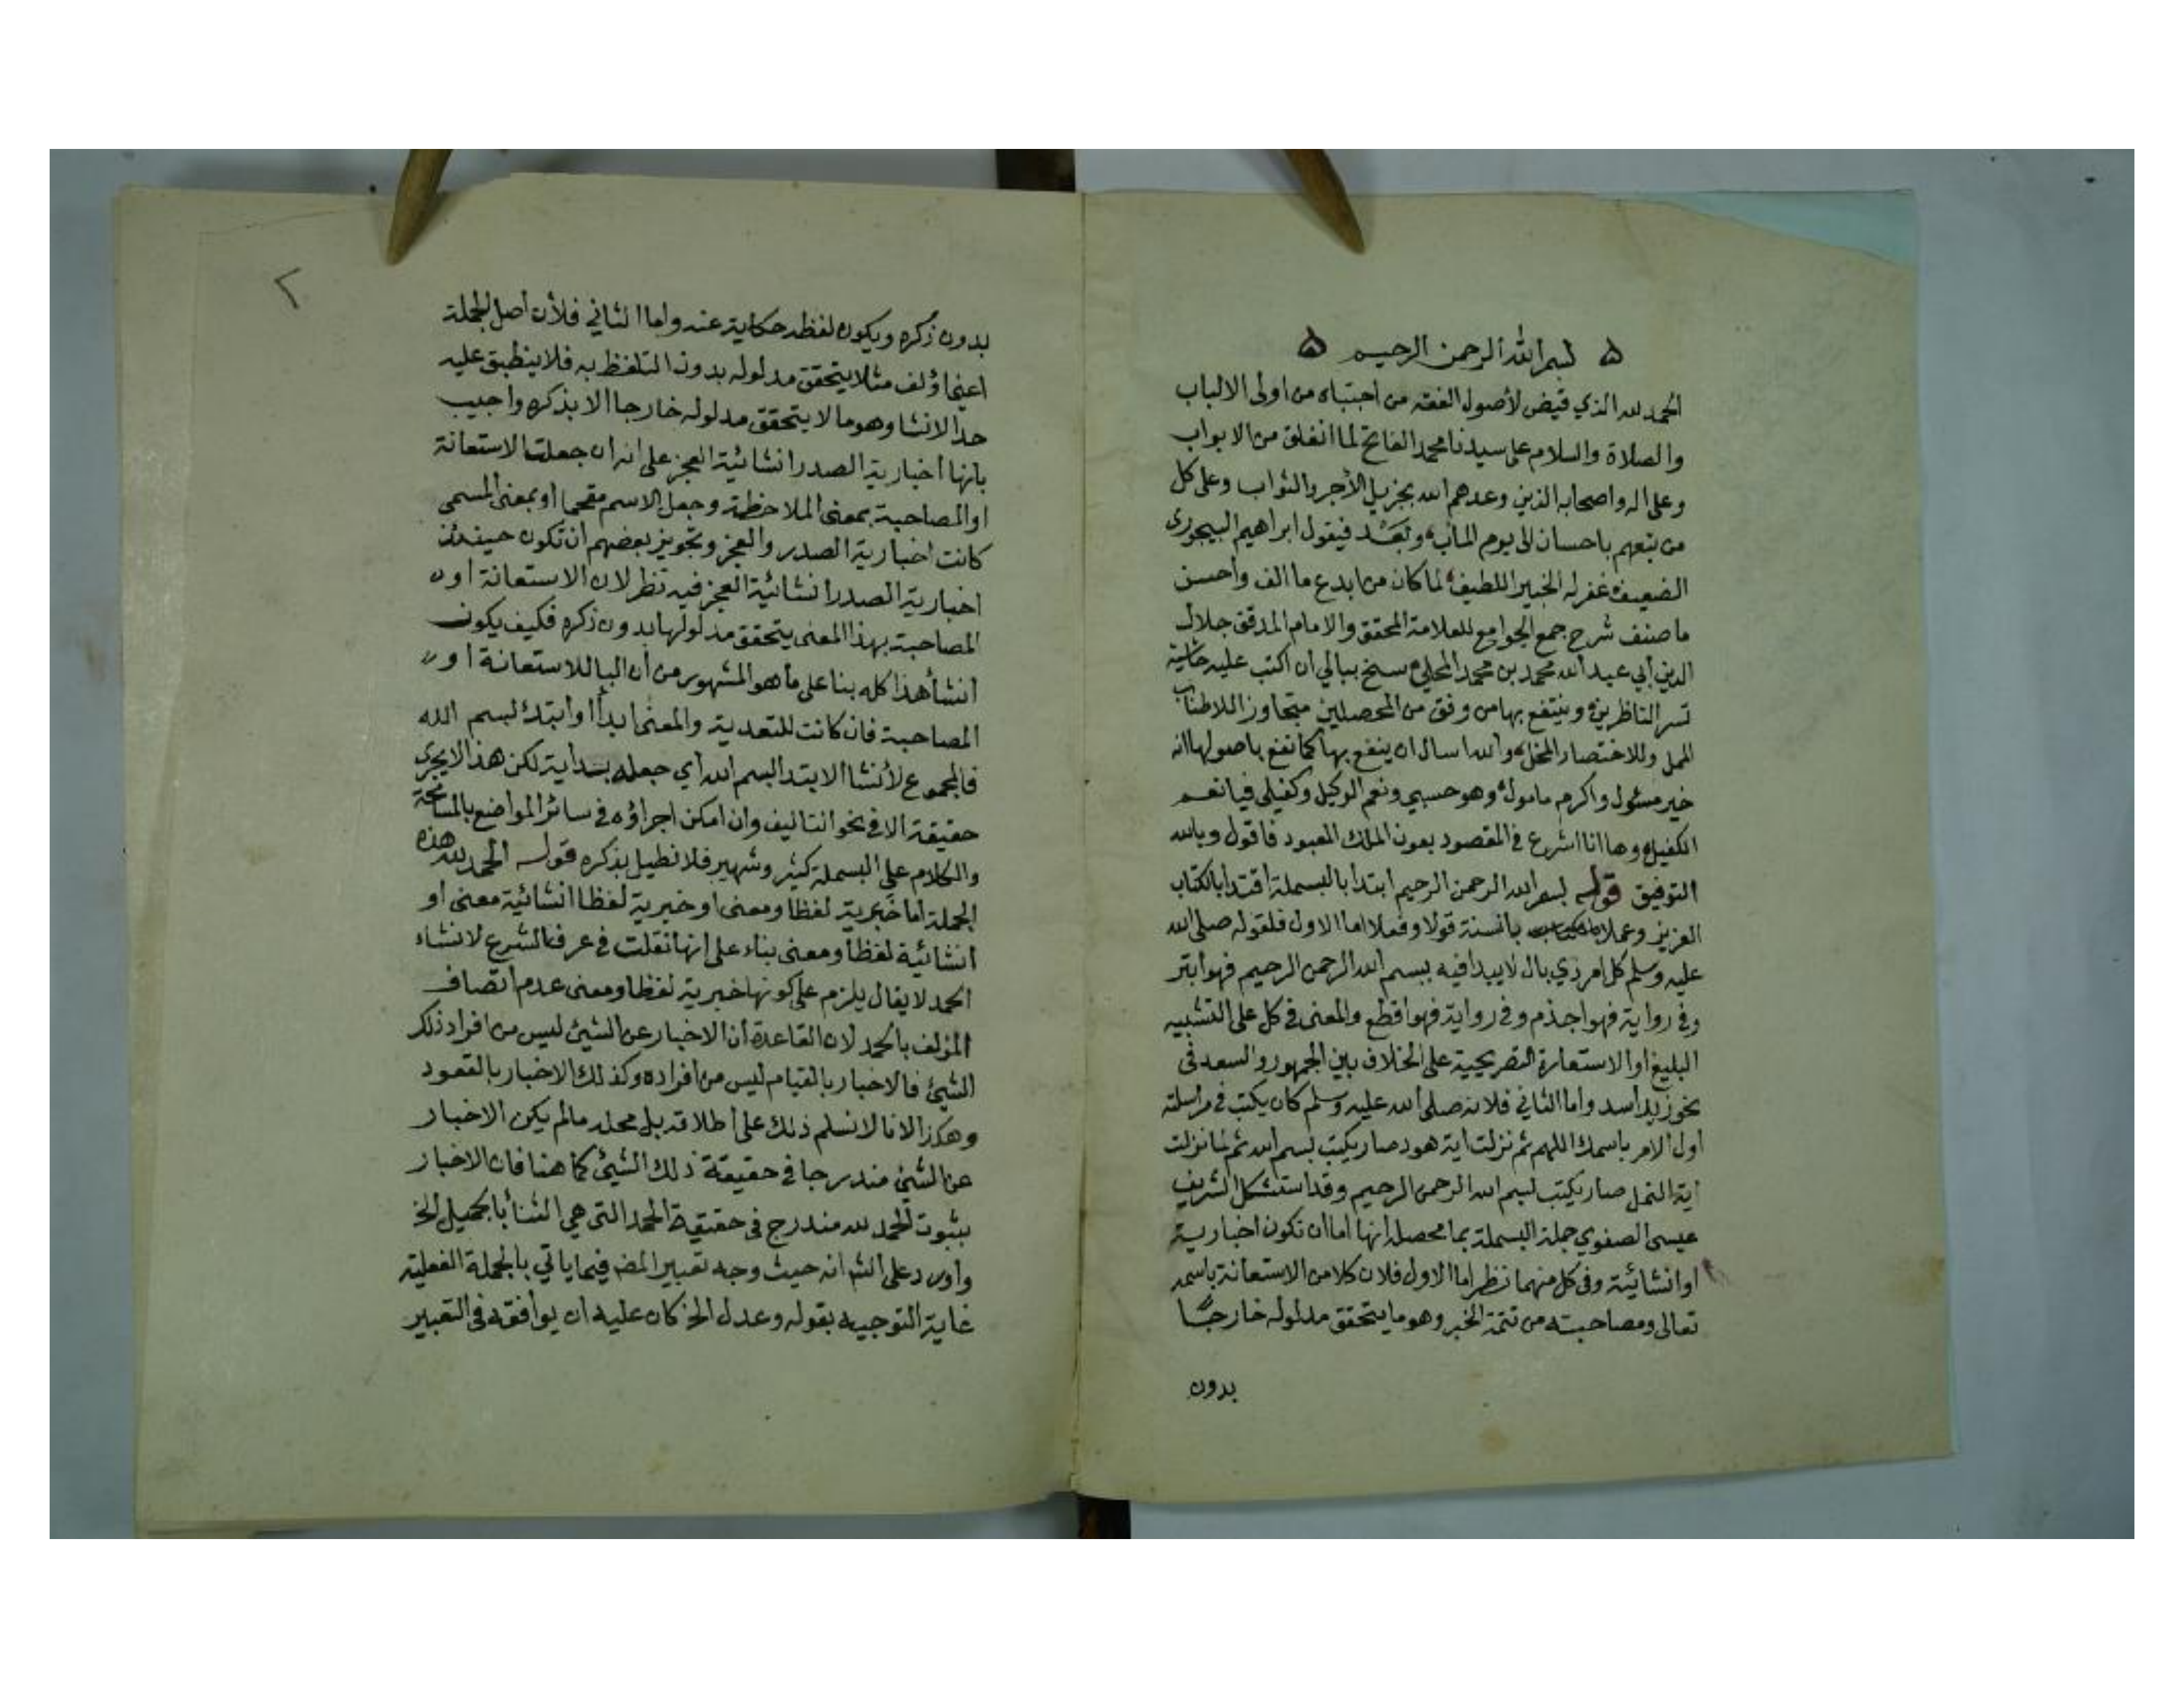 بسم الله الرحمن الرحيم
الحمد لله الذي قيض لأصول الفقه من اجتباه من اولى الالباب
والصلاة والسلام على سيدنا محمد الفاتح لما انغلق من الابواب
وعلى اله واصحابه الذين وعدهم الله بجزيل الأجر والثواب وعلى كل
من تبعهم باحسان الى يوم المآب وبعد فيقول ابراهيم البيجورى
الضعيف غفر له الخبير اللطيف لما كان من ابدع ما الف واحسن
ما صنف شرح جمع الجوامع للعلامة المحقق والامام المدقق جلال
الدين أبي عبد الله محمد بن محمد المحلي سنح ببالي أن اكتب عليه حاشية
تسر الناظرين وينتفع بها من وفق من المحصلين متجاوز اللاطناب
الممل وللاختصار المخل والله اسال ان ينفع بها كما نفع باصولها انه
خير مسئول واكرم مامول وهو حسبي ونعم الوكيل وكفيلى فيا نعم
الكفيل وها انا اشرع في المقصود بعون الملك المعبود فاقول وبالله
التوفيق قوله بسم الله الرحمن الرحيم ابتدا بالبسملة اقتدا بالكتاب
العزيز وعملا بالسنة قولا وفعلا اما الاول فلقوله صلى الله
عليه وسلم كل امر ذي بال لا يبدا فيه ببسم الله الرحمن الرحيم فهو ابتر
وفي رواية فهو اجذم وفي رواية فهو اقطع والمعنى في كل على التشبيه
البليغ او الاستعارة التصريحية على الخلاف بين الجمهور والسعد فى
نحو زيد أسد واما الثاني فلانه صلى الله عليه وسلم كان يكتب في مراسلته
اول الامر باسمك اللهم ثم نزلت اية هود صار يكتب بسم الله ثم لما نزلت
اية النمل صار يكتب بسم الله الرحمن الرحيم وقد استشكل الشريف
عيسى الصفوي جملة البسملة بما محصله انها اما ان تكون اخبارية
او انشائية وفى كل منهما نظر اما الاول فلان كلا من الاستعانة باسمه
تعالى ومصاحبته من تتمة الخبر وهو ما يتحقق مدلوله خارجا
بدون
٢
بدون ذكره ويكون لفظه حكاية عنه واما الثاني فلأن أصل الجملة
اعني اؤلف مثلا يتحقق مدلوله بدون التلفظ به فلا ينطبق عليه
حد الانشا وهو ما لا يتحقق مدلوله خارجا الا بذكره واجيب
بانها أخبارية الصدر انشائية العجز على انه ان جعلت الاستعانة
او المصاحبة بمعنى الملاحظة وجعل الاسم مقحما او بمعنى المسمى
كانت اخبارية الصدر والعجز وتجويز بعضهم ان تكون حينئذ
اخبارية الصدر انشائية العجز فيه نظر لان الاستعانة او
المصاحبة بهذا المعنى يتحقق مدلولها بدون ذكره فكيف يكون
انشأ هذا كله بنا على ما هو المشهور من أن البا للاستعانة او
المصاحبة فان كانت للتعدية والمعنى ابدأ او ابتدئ بسم الله
فالمجموع لأنشا الابتدا بسم الله أي جعله بداية لكن هذا لا يجرى
حقيقة الا في نحو التاليف وان امكن اجراؤه في سائر المواضع بالمسامحة
والكلام على البسملة كثير وشهير فلا نطيل بذكره قوله الحمد لله هذه
الجملة اما خبرية لفظا ومعنى او خبرية لفظا انشائية معنى او
انشائية لفظا ومعنى بناء على انها نقلت في عرف الشرع لانشاء
الحمد لا يقال يلزم على كونها خبرية لفظا ومعنى عدم اتصاف
المؤلف بالحمد لان القاعدة أن الاخبار عن الشيئ ليس من افراد ذلك
الشيئ فالاخبار بالقيام ليس من افراده وكذلك الاخبار بالقعود
وهكذا لانا لا نسلم ذلك على اطلاقه بل محله ما لم يكن الاخبار
عن الشيئ مندرجا في حقيقة ذلك الشيئ كما هنا فان الاخبار
بثبوت الحمد لله مندرج في حقيقة الحمد التى هي الثنأ بالجميل الخ
واورد على الشم انه حيث وجه تعبير المصه فيما ياتي بالجملة الفعلية
غاية التوجيه بقوله وعدل الخ كان عليه ان يوافقه فى التعبير